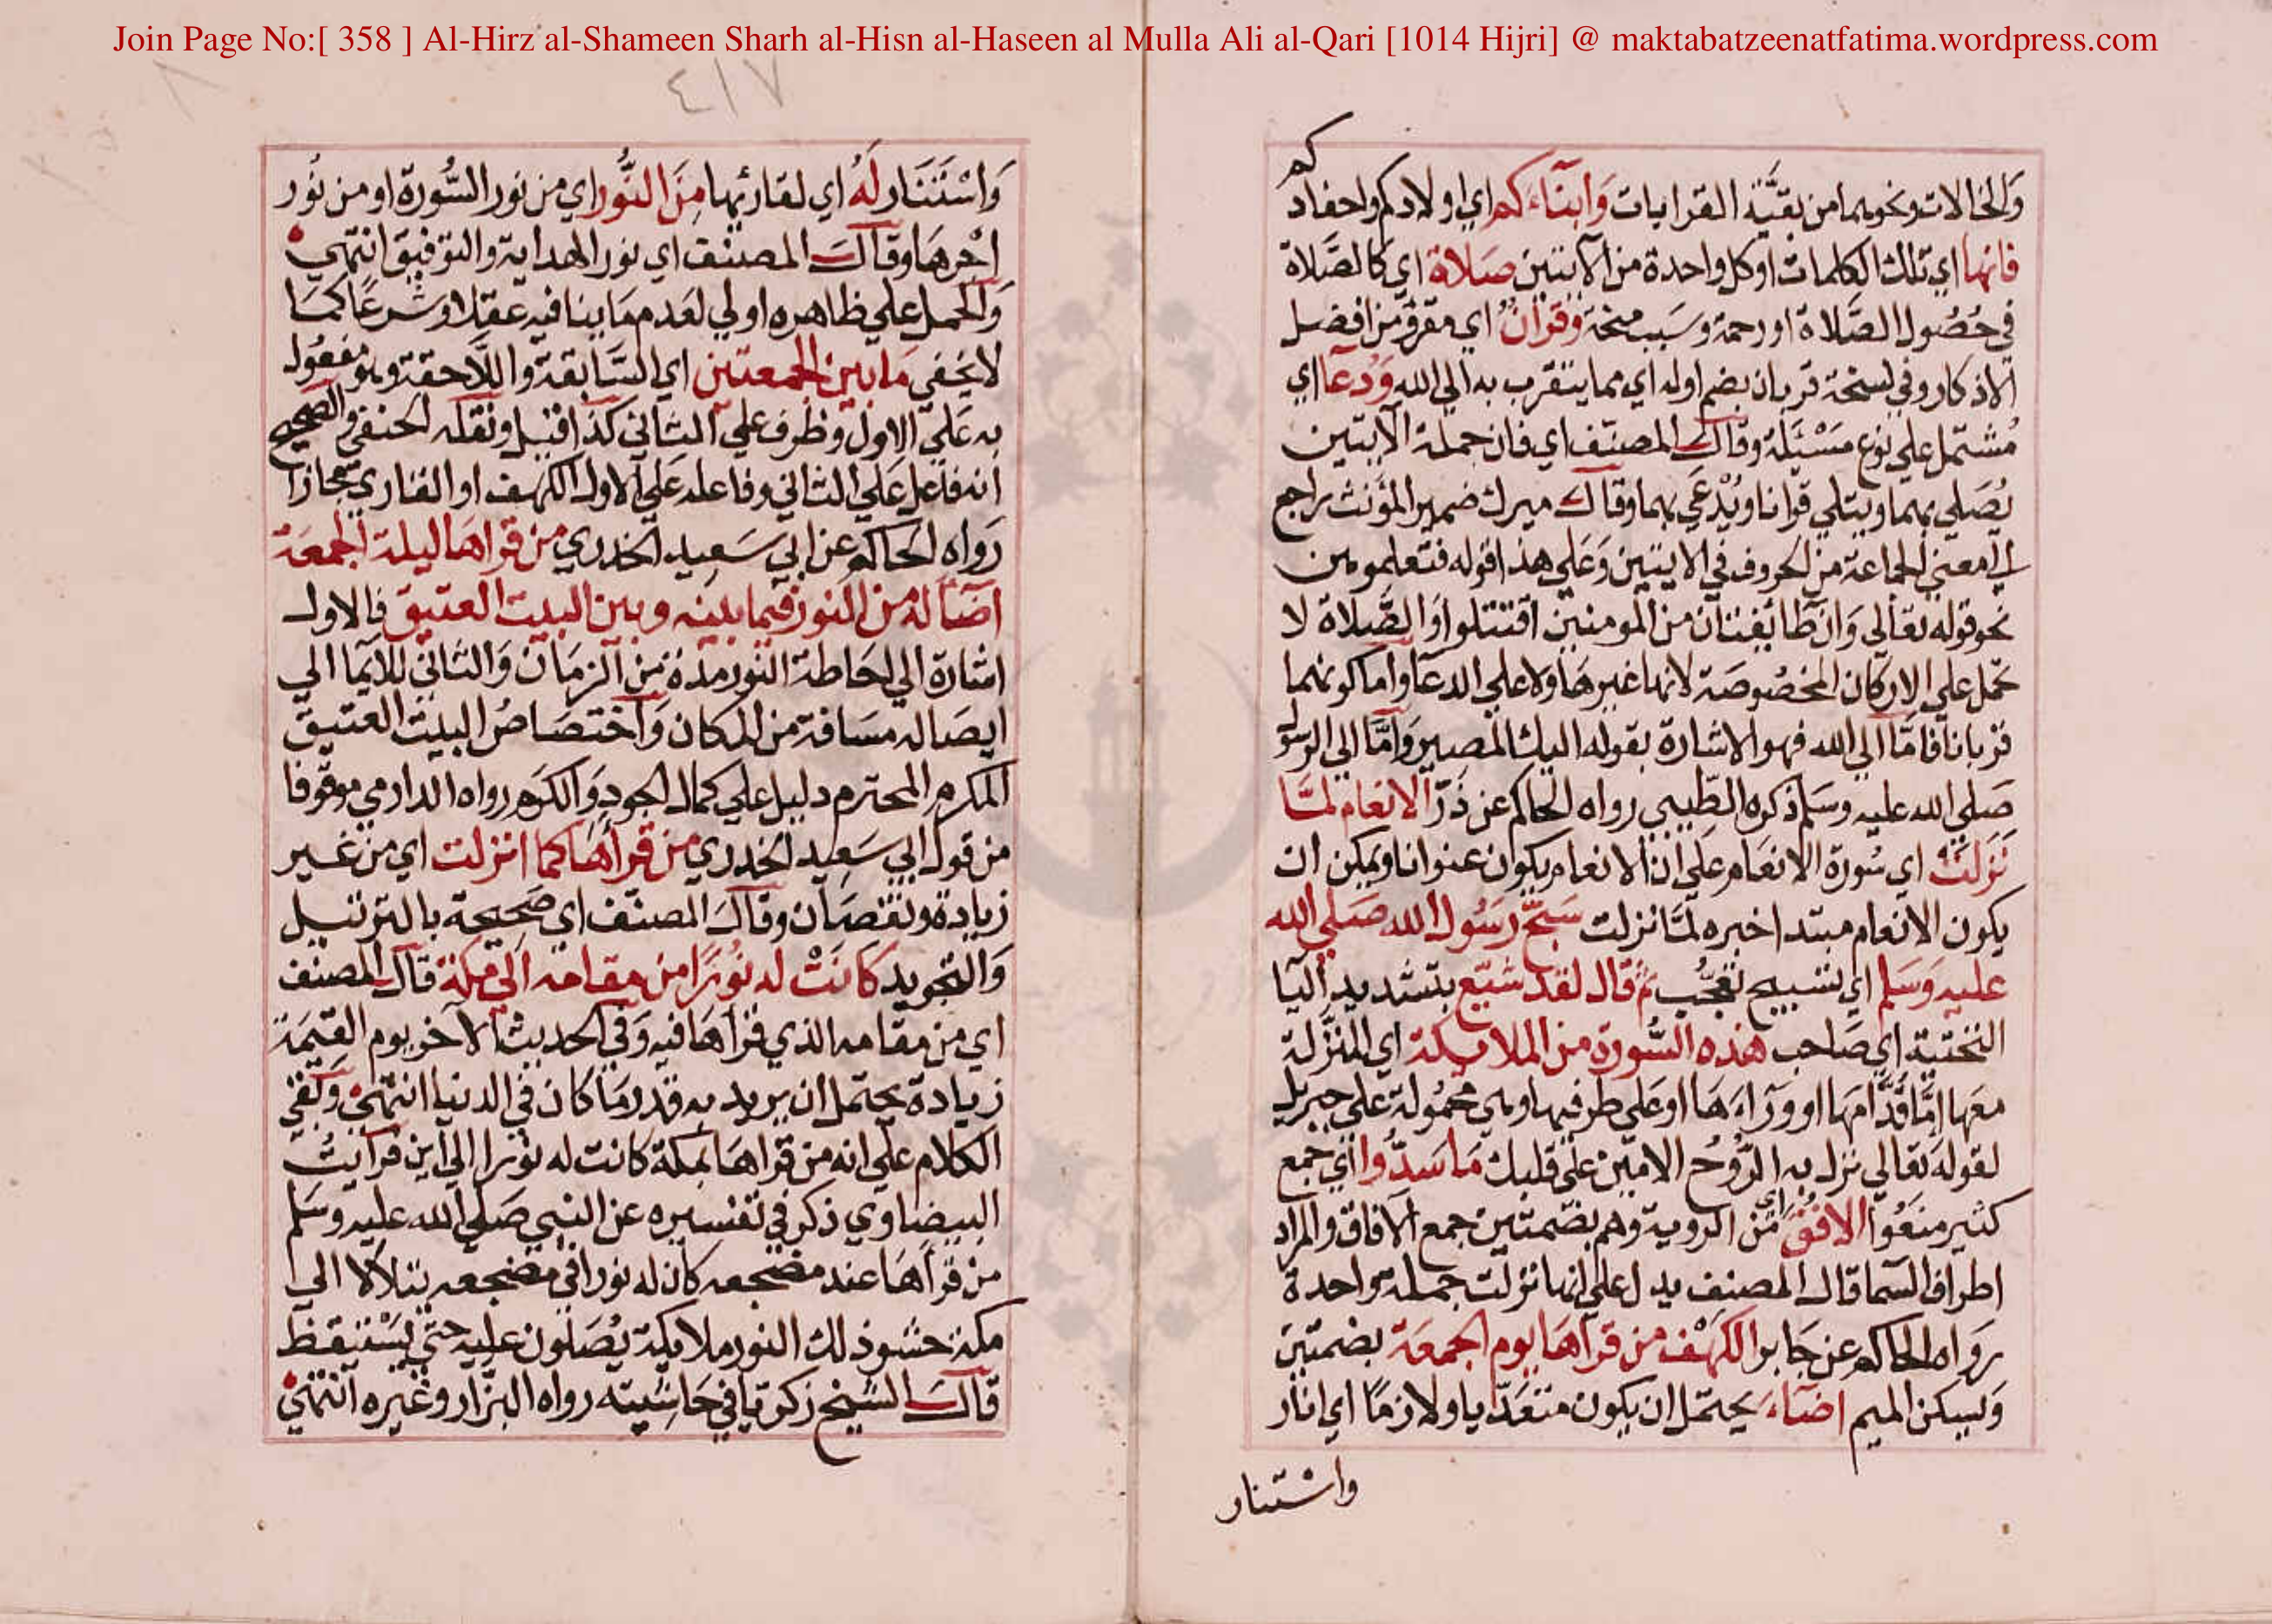 Join Page No:[ 358 ] Al-Hirz al-Shameen Sharh al-Hisn al-Haseen al Mulla Ali al-Qari [1014 Hijri] @ maktabatzeenatfatima.wordpress.com
والخالات ونحوهما من بقية القرابات وَابنَآءَكم اي اولادكم واحفادكم
فانها اي تلك الكلمات او كل واحدة من الآيتين صلاة اي كالصَّلاة
في حُصُول الصَّلاة او رحمة وسَبب منحة وقرآنٌ اي مقرؤ من افضل
الاذكار وفي نسخة قربان بضم اوله اي مما يتقرب به الي الله وَدُعآ اي
مُشتمل علي نوع مَسْئَلة وقال المصنّف اي فان جملة الآيتين
يُصَلي بهما ويتلي قرانا ويُدْعَي بهما وقال ميرك ضمير المؤنث راجع
الي معني الجماعة من الحروف في الايتين وَعَلي هذا قوله فتعلموهن
نحو قوله تعَالي وَان طائفتان من المومنين اقتتلوا وَالصَّلاة لا
تحمل علي الاركان المخصُوصَة لانها غيرهَا ولا علي الدعا واما كونهما
قربانا فامَّا الي الله فهو الاشارة بقوله اليك المصير وَامَّا الي الرسول
صَلي الله عليه وسَلم ذكره الطّيبي رواه الحاكم عن ذَرّ الانعام لمَّا
نَزلَتْ اي سُورة الانعَام علي ان الانعام يكون عنوانا ويمكن ان
يكون الانعام مبتدا خبره لمَّا نزلت سَبحَّ رسَوُل الله صَلي الله
عليه وَسَلم اي تسبيح تعجُّب ثم قال لقد شيّع بتشديد اليا
التحتية اي صَاحب هذه السُّورة من الملايكة اي المنَزَّلة
معَها امَّا قدَّامهَا او ورَآءَهَا او عَلي طرفيها وهي محمُولة علي جبريل
لقوله تعَالي نزل به الرُّوحُ الامين عَلي قلبك مَا سَدُّوا اي جمع
كثير منعَوُا الافُقَ اي من الروية وهم بضمتين جمع الآفاق والمراد
اطراف السَّما قال المصنف يدل علي انها نزلت جملة واحدة
رَوَاه الحاكم عن جَابر الكهْف من قراهَا يوم الجمعَة بضمتين
وَيسكن الميم اضَآءَ يحتمل ان يكون متعَدّيا ولازمًا اي انار
واسْتنار
٤١٧
وَاسْتَنَار لَهُ اي لقارئها مِنَ النُّور اي من نور السُّورة او من نُور
اجْرهَا وقال المصنف اي نور الهداية والتوفيق انتهي
وَالحمل علي ظاهره اولي لعَدم مَا ينافيه عقلا وشرعًا كمَا
لا يخفي مَا بين الجمعتين اي السَّابقة واللّاحقة وهو مفعُول
به عَلي الاول وظرف علي الثاني كذا قيل ونقله الحنفي والصحيح
انه فاعل عَلي الثاني وفاعله عَلي الاول الكهف او القاري مجازا
رَواه الحاكم عن ابي سَعِيد الخدري من قراهَا ليلة الجمعَة
اضَآ له من النور فيما بينه وبين البيت العتيق فالاول
اشارة الي احَاطة النور مدة من الزمَان وَالثاني للايما الي
ايصَاله مسَافة من المكان وَاختصَاصُ البيت العتيق
المكرم المحترم دليل علي كمال الجود وَالكرَم رواه الدارمي موقوفا
من قول ابي سَعِيد الخدري من قرأهَا كما انزلت اي من غير
زيادة ونقصَان وقالَ المصنّف اي صَحيحة بالترتيل
وَالتجويد كَانَتْ له نُورًا من مقامه الي مكة قال المصنف
اي من مقامه الذي قرأهَا فيه وَفي الحديث الآخر يوم القيمَة
زيادة يحتمل ان يريد به قدر مَا كان في الدنيا انتهي وَبقي
الكلام علي انه من قراهَا بمكة كانت له نُورا الي اين فرايتُ
البيضاوي ذكر في تفسيره عن النبي صَلي الله عليه وسَلم
من قرأهَا عند مضجعه كان له نورا في مضجعه يتلألأ الي
مكة حشو ذلك النور ملايكة يُصَلون عليه حتي يَسْتيقظ
قال الشيخ زكريا في حَاشيته رواه البزّار وغيره انتهي